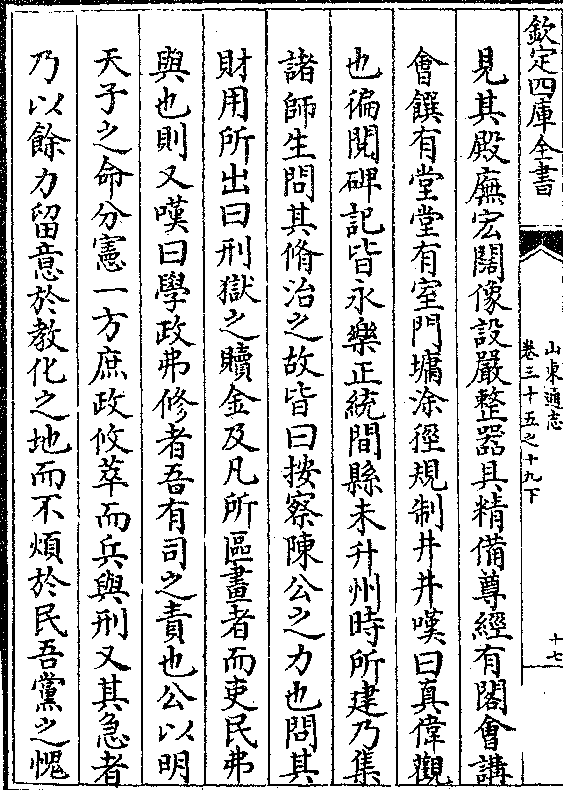 欽定四庫全書
山東通志
卷三十五之十九下
十七
見其殿廡宏闊像設嚴整器具精備尊經有閣會講
會饌有堂堂有室門墉涂徑規制井井嘆曰真偉觀
也徧閱碑記皆永樂正統間縣未升州時所建乃集
諸師生問其脩治之故皆曰按察陳公之力也問其
財用所出曰刑獄之贖金及凡所區畫者而吏民弗
與也則又嘆曰學政弗修者吾有司之責也公以明
天子之命分憲一方庶政攸萃而兵與刑又其急者
乃以餘力留意於教化之地而不煩於民吾黨之愧